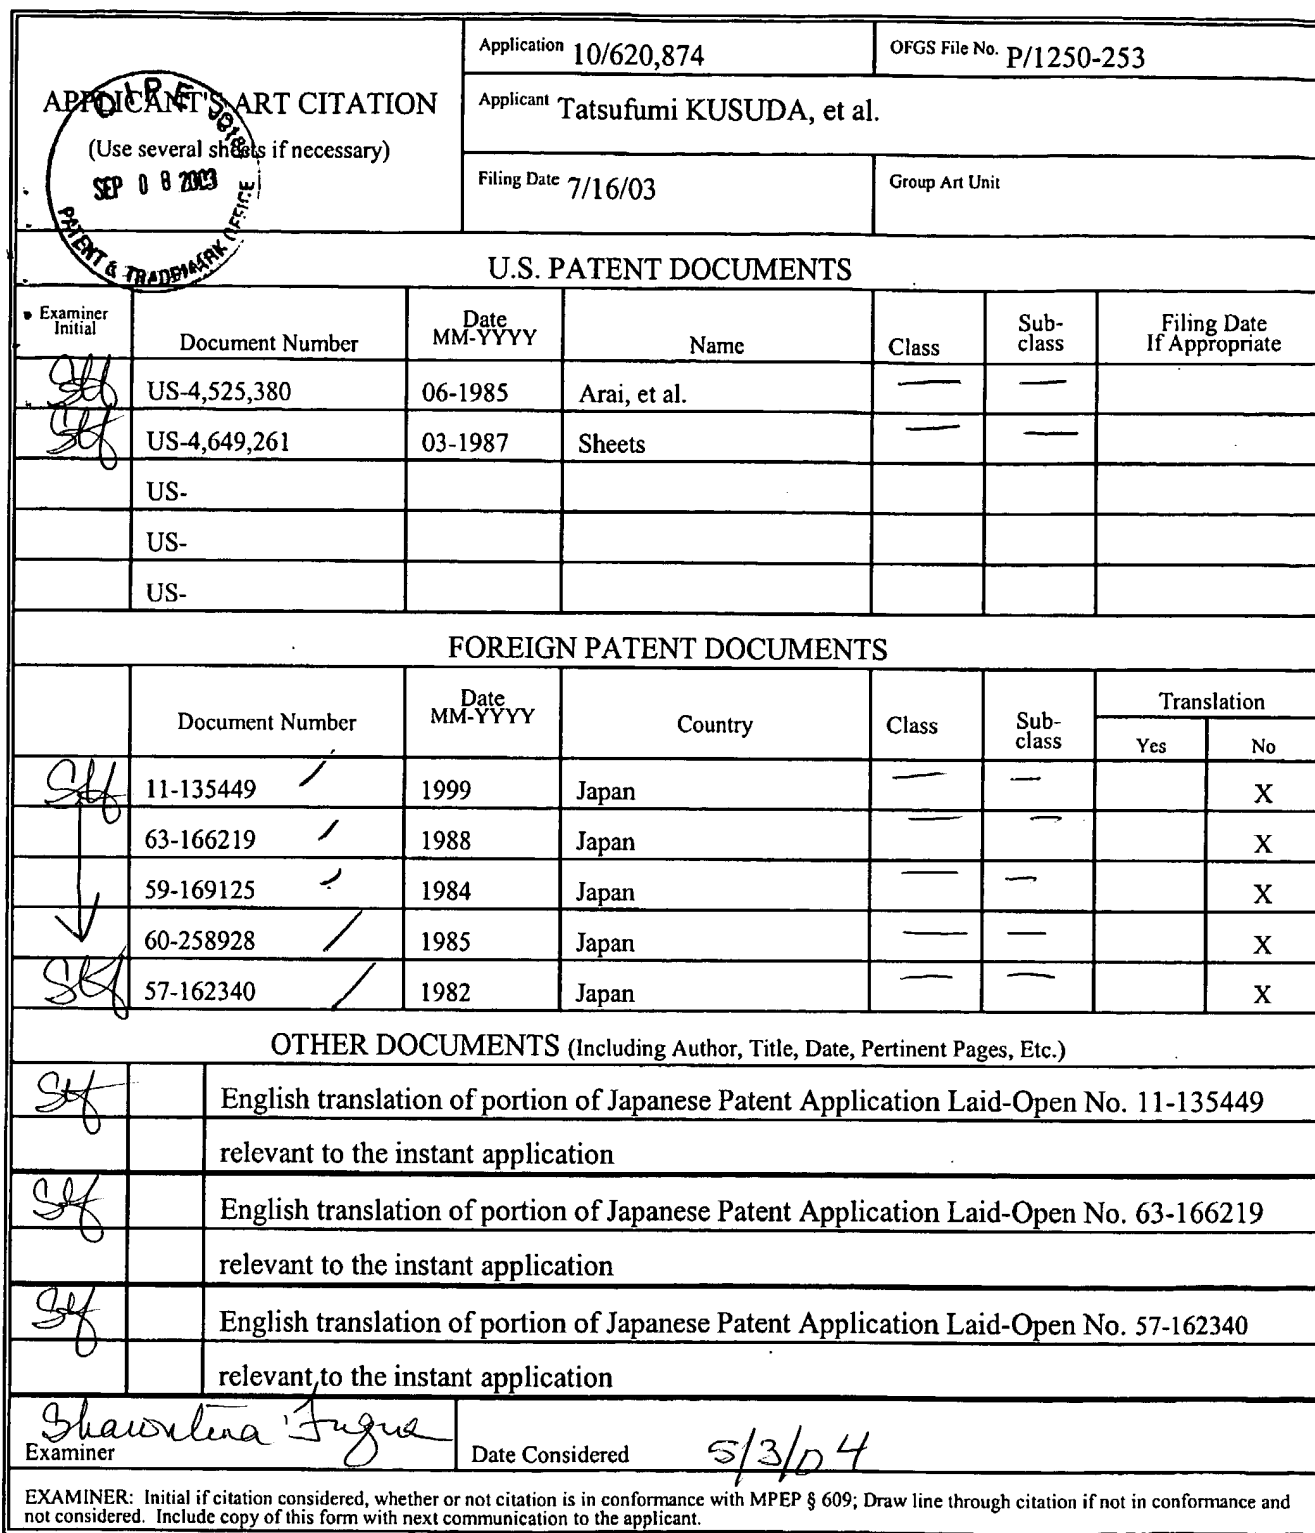 APPLICANT'S ART CITATION
(Use several sheets if necessary)
OIPE JC18
SEP 08 2003
PATENT & TRADEMARK OFFICE
Application 10/620,874
OFGS File No. P/1250-253
Applicant Tatsufumi KUSUDA, et al.
Filing Date 7/16/03
Group Art Unit
U.S. PATENT DOCUMENTS
Examiner Initial Document Number Date MM-YYYY Name Class Sub-class Filing Date If Appropriate
US-4,525,380 06-1985 Arai, et al. — —
US-4,649,261 03-1987 Sheets — —
US-
US-
US-
FOREIGN PATENT DOCUMENTS
Document Number Date MM-YYYY Country Class Sub-class Translation Yes No
11-135449 1999 Japan — — X
63-166219 1988 Japan — — X
59-169125 1984 Japan — — X
60-258928 1985 Japan — — X
57-162340 1982 Japan — — X
OTHER DOCUMENTS (Including Author, Title, Date, Pertinent Pages, Etc.)
English translation of portion of Japanese Patent Application Laid-Open No. 11-135449
relevant to the instant application
English translation of portion of Japanese Patent Application Laid-Open No. 63-166219
relevant to the instant application
English translation of portion of Japanese Patent Application Laid-Open No. 57-162340
relevant to the instant application
Examiner Shawntina Fuqua
Date Considered 5/3/04
EXAMINER: Initial if citation considered, whether or not citation is in conformance with MPEP § 609; Draw line through citation if not in conformance and
not considered. Include copy of this form with next communication to the applicant.